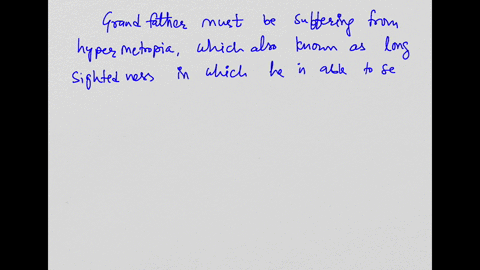 Grand father must be suffering from
hyper metropia, which also known as long
sighted ness in which he in able to se